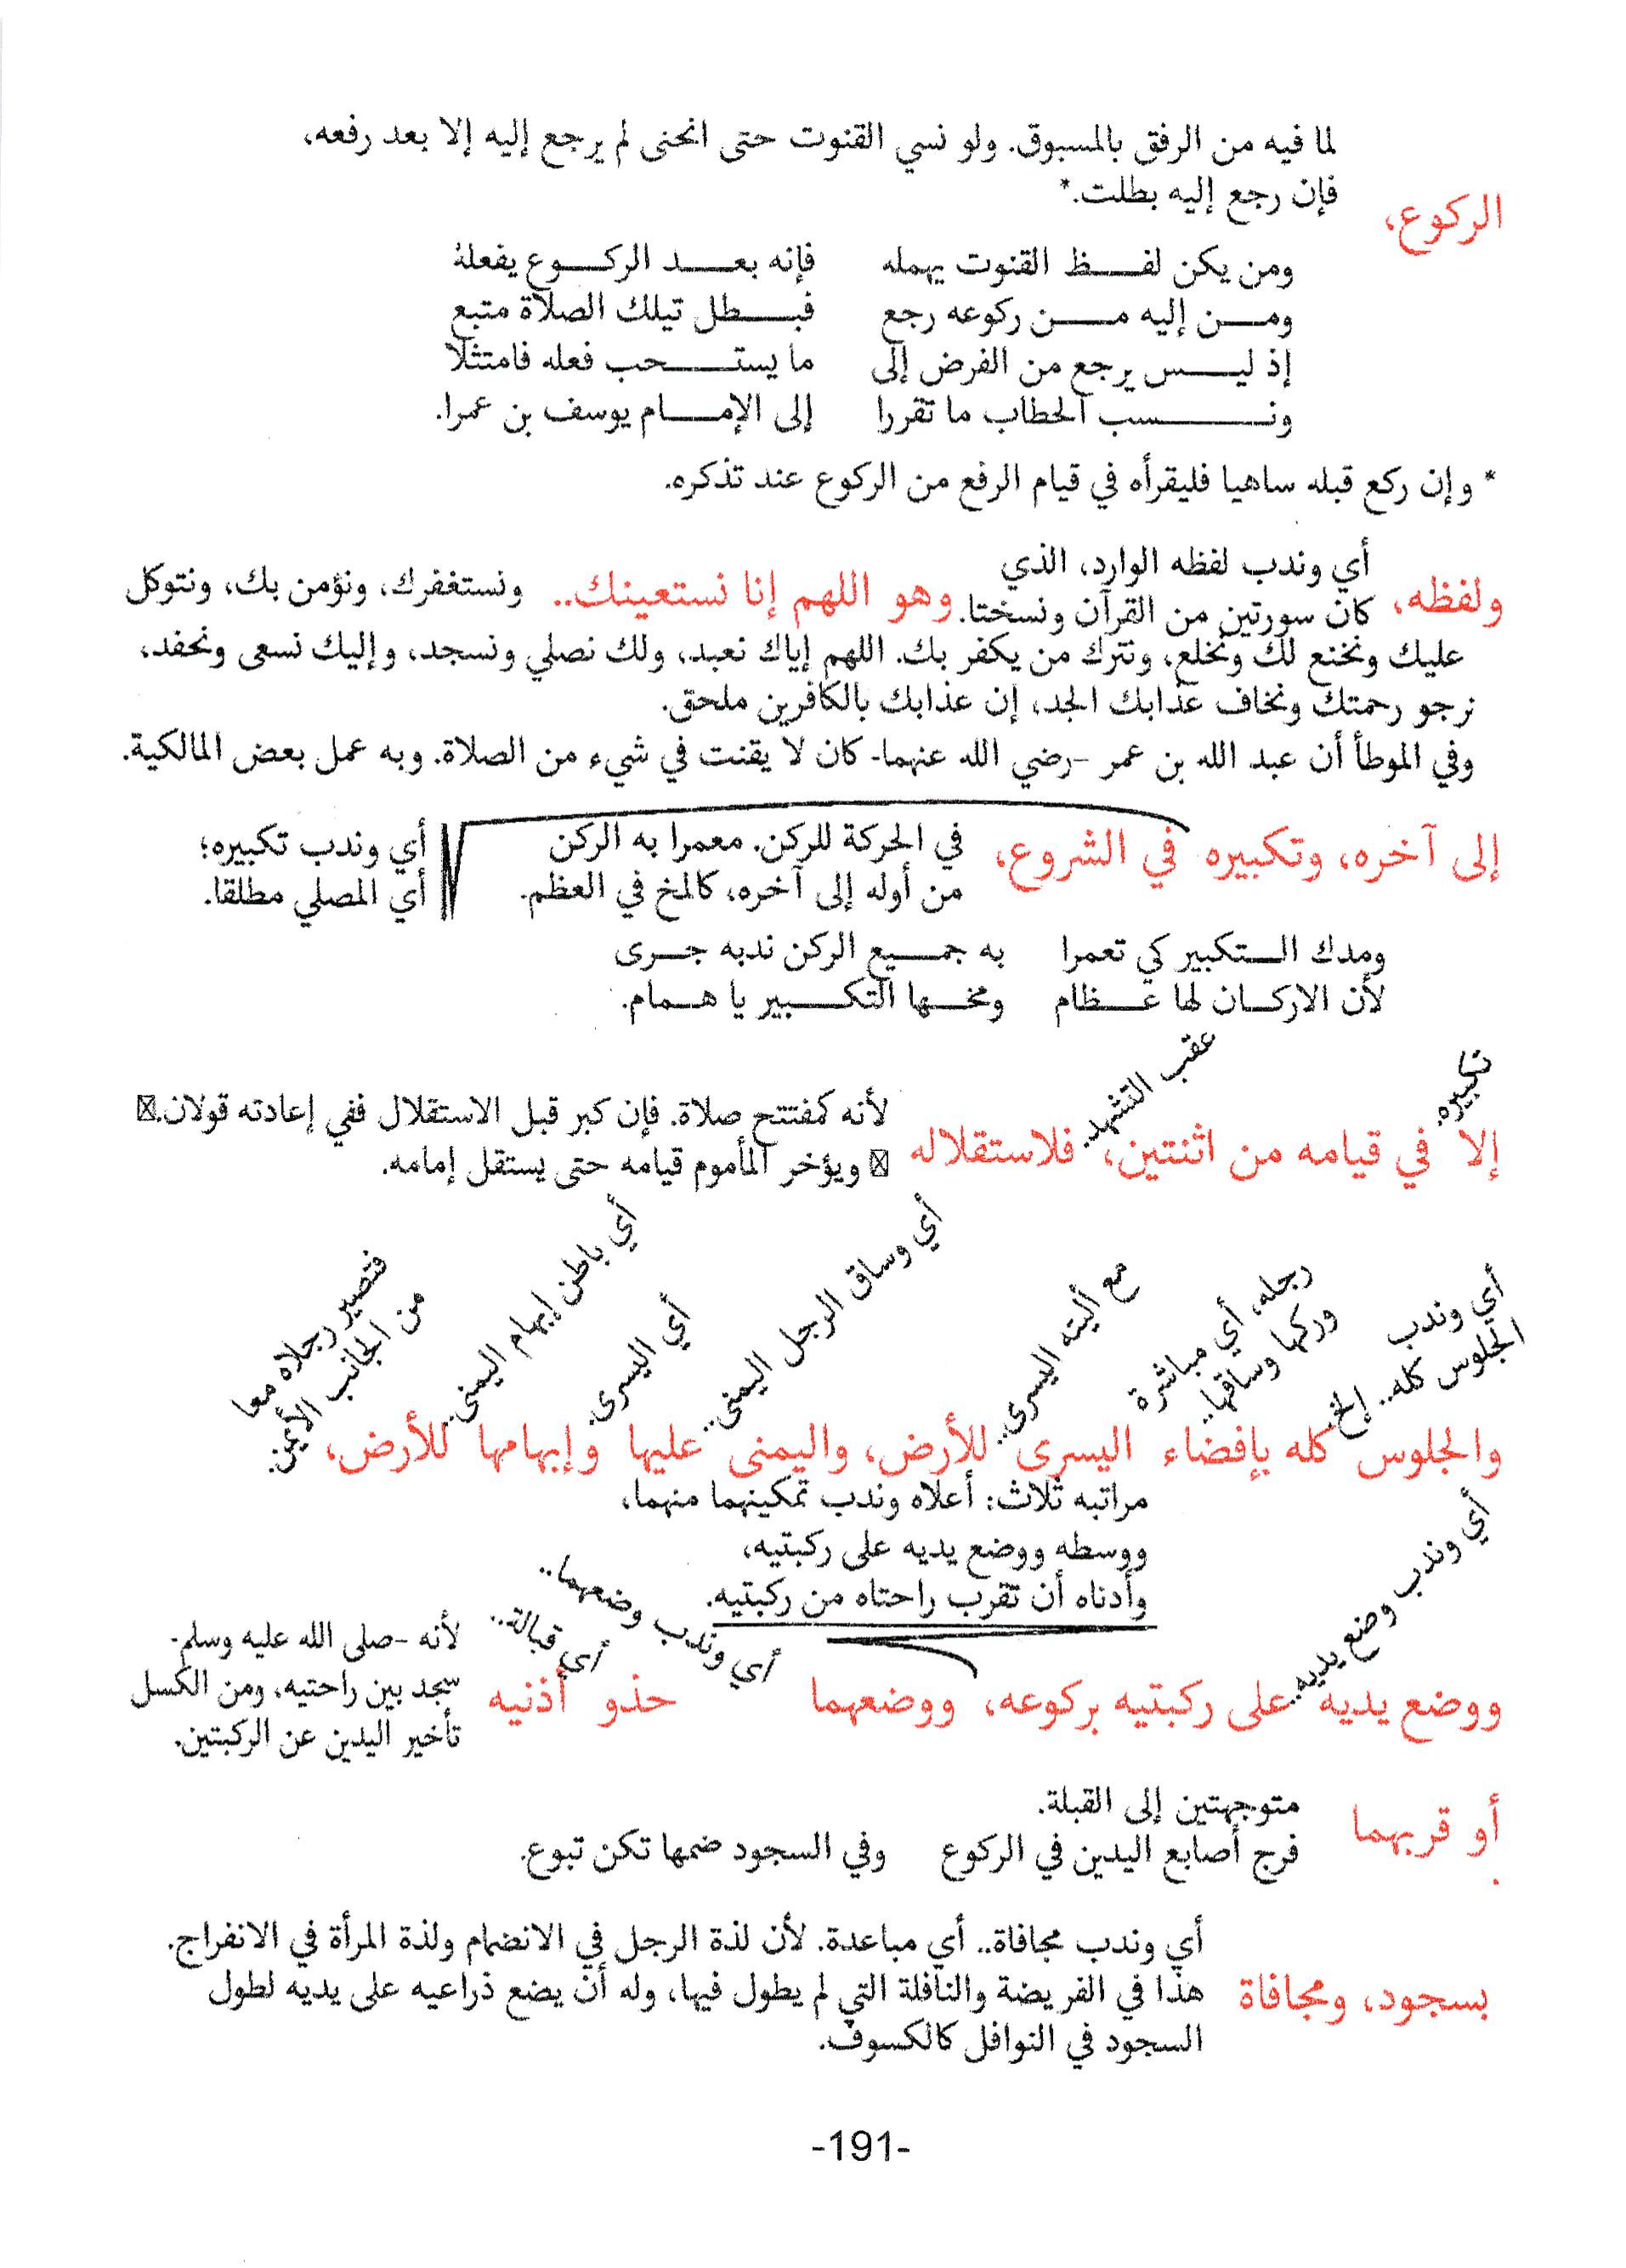 لما فيه من الرفق بالمسبوق. ولو نسي القنوت حتى انحنى لم يرجع إليه إلا بعد رفعه،
الركوع،
فإن رجع إليه بطلت.*
ومن يكن لفظ القنوت يهمله فإنه بعد الركوع يفعله
ومن إليه من ركوعه رجع فبطل تيلك الصلاة متبع
إذ ليس يرجع من الفرض إلى ما يستحب فعله فامتثلا
ونسب الحطاب ما تقررا إلى الإمام يوسف بن عمرا.
* وإن ركع قبله ساهيا فليقرأه في قيام الرفع من الركوع عند تذكره.
ولفظه،
أي وندب لفظه الوارد، الذي
كان سورتين من القرآن ونسختا.
وهو اللهم إنا نستعينك.. ونستغفرك، ونؤمن بك، ونتوكل
عليك ونخنع لك ونخلع، ونترك من يكفر بك. اللهم إياك نعبد، ولك نصلي ونسجد، وإليك نسعى ونحفد،
نرجو رحمتك ونخاف عذابك الجد، إن عذابك بالكافرين ملحق.
وفي الموطأ أن عبد الله بن عمر -رضي الله عنهما- كان لا يقنت في شيء من الصلاة. وبه عمل بعض المالكية.
إلى آخره، وتكبيره في الشروع،
في الحركة للركن. معمرا به الركن
من أوله إلى آخره، كالمخ في العظم.
أي وندب تكبيره؛
أي المصلي مطلقا.
ومدك التكبير كي تعمرا به جميع الركن ندبه جرى
لأن الاركان لها عظام ومخها التكبير يا همام.
تكبيره.
عقب التشهد.
إلا في قيامه من اثنتين، فلاستقلاله
لأنه كمفتتح صلاة. فإن كبر قبل الاستقلال ففي إعادته قولان.☒
☒ ويؤخر المأموم قيامه حتى يستقل إمامه.
أي وندب
الجلوس كله.. إلخ.
رجله، أي مباشرة
وركها وساقها..
مع أليته اليسرى..
أي وساق الرجل اليمنى..
أي اليسرى.
أي باطن إبهام اليمنى..
فتصير رجلاه معا
من الجانب الأيمن.
والجلوس كله بإفضاء اليسرى للأرض، واليمنى عليها وإبهامها للأرض،
مراتبه ثلاث: أعلاه وندب تمكينهما منهما،
ووسطه ووضع يديه على ركبتيه،
وأدناه أن تقرب راحتاه من ركبتيه.
أي وندب وضع يديه.
أي وندب وضعهما..
أي قبالة..
ووضع يديه على ركبتيه بركوعه، ووضعهما حذو أذنيه
لأنه -صلى الله عليه وسلم-
سجد بين راحتيه، ومن الكسل
تأخير اليدين عن الركبتين.
أو قربهما
متوجهتين إلى القبلة.
فرج أصابع اليدين في الركوع وفي السجود ضمها تكن تبوع.
بسجود، ومجافاة
أي وندب مجافاة.. أي مباعدة. لأن لذة الرجل في الانضمام ولذة المرأة في الانفراج.
هذا في الفريضة والنافلة التي لم يطول فيها، وله أن يضع ذراعيه على يديه لطول
السجود في النوافل كالكسوف.
-191-